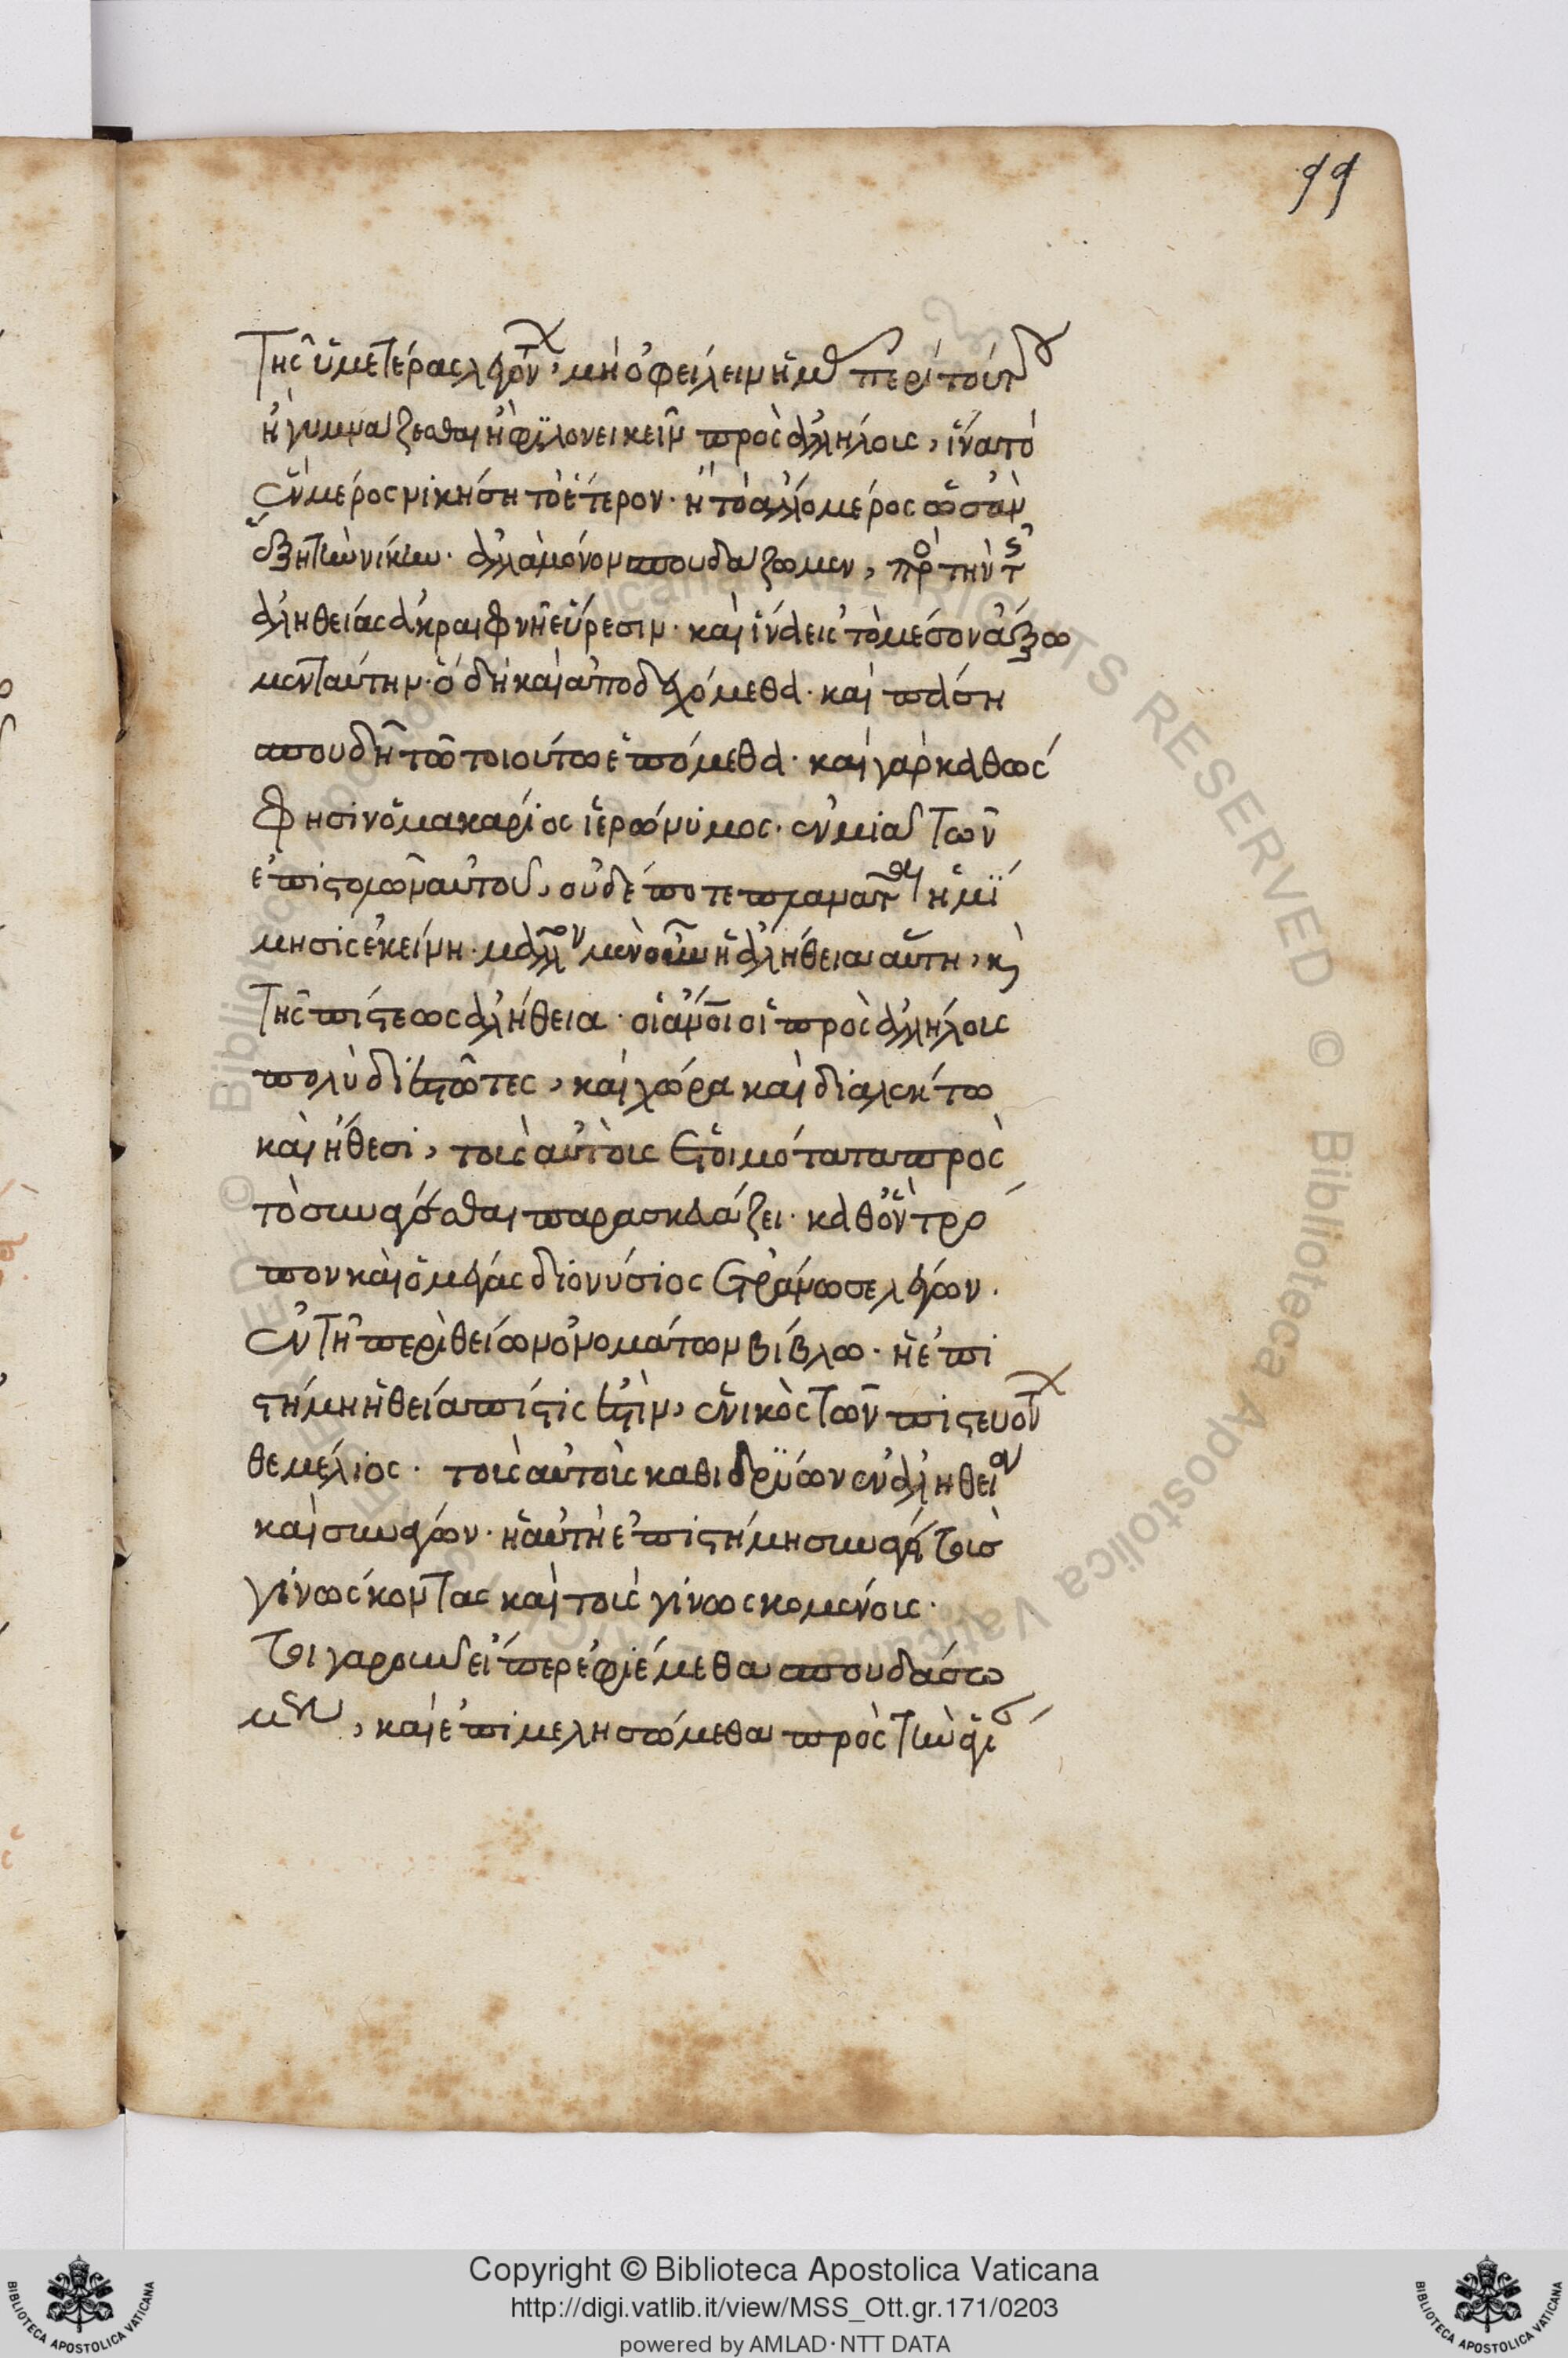 99
Τῆς ὑμετέρας λεγόντων, μὴ ὀφείλειν ἡμᾶς περὶ τούτου
ἢ γυμνάζεσθαι ἢ φιλονεικεῖν πρὸς ἀλλήλοις, ἵνα τὸ
ἓν μέρος νικήση τὸ ἕτερον. ἢ τὸ ἄλλο μέρος ὡσὰν
ἕξῃ τὴν νίκην. ἀλλὰ μόνον σπουδάζωμεν, πρὸς τὴν τῆς
ἀληθείας ἀκραιφνῆ εὕρεσιν. καὶ ἵνα εἰς τὸ μέσον ἄξω
μεν ταύτην. ὃ δὴ καὶ ἀποδεχόμεθα. καὶ πάση
σπουδῆ τῶ τοιούτω ἑπόμεθα. καὶ γὰρ καθὼς
Φησὶν ὁ μακάριος ἱερώνυμος. ἐν μιᾶ τῶν
ἐπιστολῶν αὐτοῦ, οὐδέποτε πλανᾶται ἡ μί
μησις ἐκείνη. μᾶλλον μὲν οὖν ἡ ἀλήθεια αὕτη, καὶ
Τῆς πίστεως ἀλήθεια. οἱ ἄνοι οἱ πρὸς ἀλλήλοις
πολὺ διεστῶτες, καὶ χώρα καὶ διαλέκτω
καὶ ἤθεσι, τοὺς αὐτοὺς ἑτοιμότατα πρὸς
τὸ συνάγεσθαι παρασκευάζει. καθ' ὃν τρό
πον καὶ ὁ μέγας διονύσιος ἐπάνωσε λέγων.
Ἐν τῆ περὶ θείων ὀνομάτων βίβλω. ἡ ἐπι
στήμη ἡ θεία πίστις ἐστὶν, ἑνικὸς τῶν πιστευόντων
θεμέλιος. τοὺς αὐτοὺς καθιδρύων ἐν ἀληθεία
καὶ συνάγων. ἡ αὐτὴ ἐπιστήμη συνάγει τοὺς
γινώσκοντας καὶ τοὺς γινωσκομένοις.
Τί γὰρ οὖν εἴπερ ἐφιέμεθα σπουδάσω
μεν, καὶ ἐπιμελησόμεθα πρὸς τὴν
Copyright © Biblioteca Apostolica Vaticana
http://digi.vatlib.it/view/MSS_Ott.gr.171/0203
powered by AMLAD·NTT DATA
© Biblioteca Apostolica Vaticana ALL RIGHTS RESERVED
BIBLIOTECA APOSTOLICA VATICANA
BIBLIOTECA APOSTOLICA VATICANA